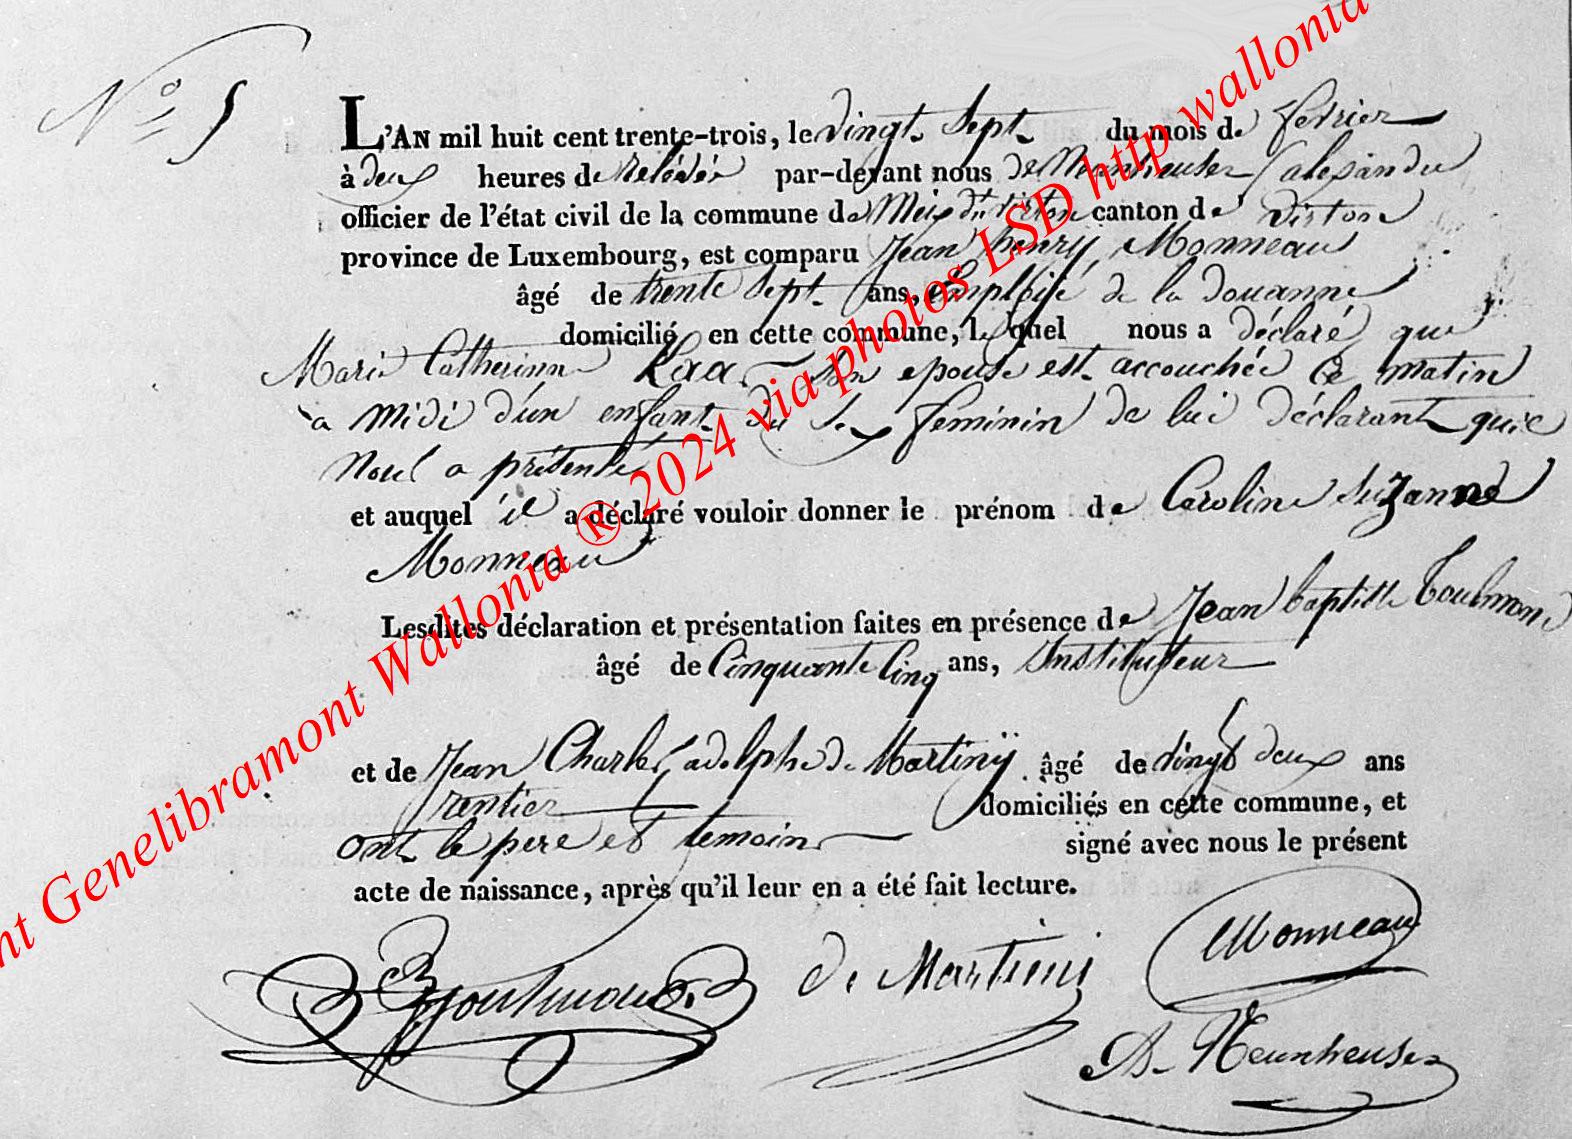 N° 5
L'AN mil huit cent trente-trois, le vingt sept du mois de fevrier
à deux heures de relévée par-devant nous de Neunheuser alexandre
officier de l'état civil de la commune de Meix dt virton canton de virton
province de Luxembourg, est comparu Jean henry Monneau
âgé de trente sept ans, Employé de la douanne
domicilié en cette commune, lequel nous a déclaré que
Marie Catherinne son epouse est accouchée ce matin
à midi d'un enfant du sex feminin de lui déclarant qu'il
nous a présenté
et auquel il a déclaré vouloir donner le prénom de Caroline suzanne
Monneau
Lesdites déclaration et présentation faites en présence de Jean baptiste toulmonde
âgé de Cinquante Cinq ans, Instituteur
et de Jean Charles adolphe de Martiny âgé de vingt deux ans
rentier domiciliés en cette commune, et
ont le pere et temoins signé avec nous le présent
acte de naissance, après qu'il leur en a été fait lecture.
Monneau
de Martini
Neunheuser
nt Genelibramont Wallonia ® 2024 via photos LSD http wallonia